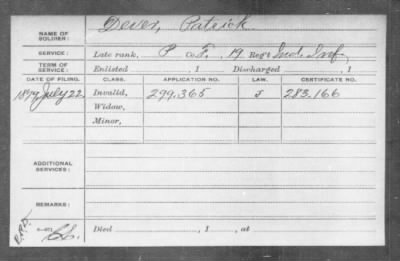 NAME OF SOLDIER: Dever, Patrick
SERVICE: Late rank, P Co. F, 19 Reg't Ind. Inf
TERM OF SERVICE: Enlisted , 1 Discharged , 1
DATE OF FILING. CLASS. APPLICATION NO. LAW. CERTIFICATE NO.
1879 July 22 Invalid, 299.365 J 283.166
Widow,
Minor,
ADDITIONAL SERVICES:
REMARKS:
Died , 1 , at